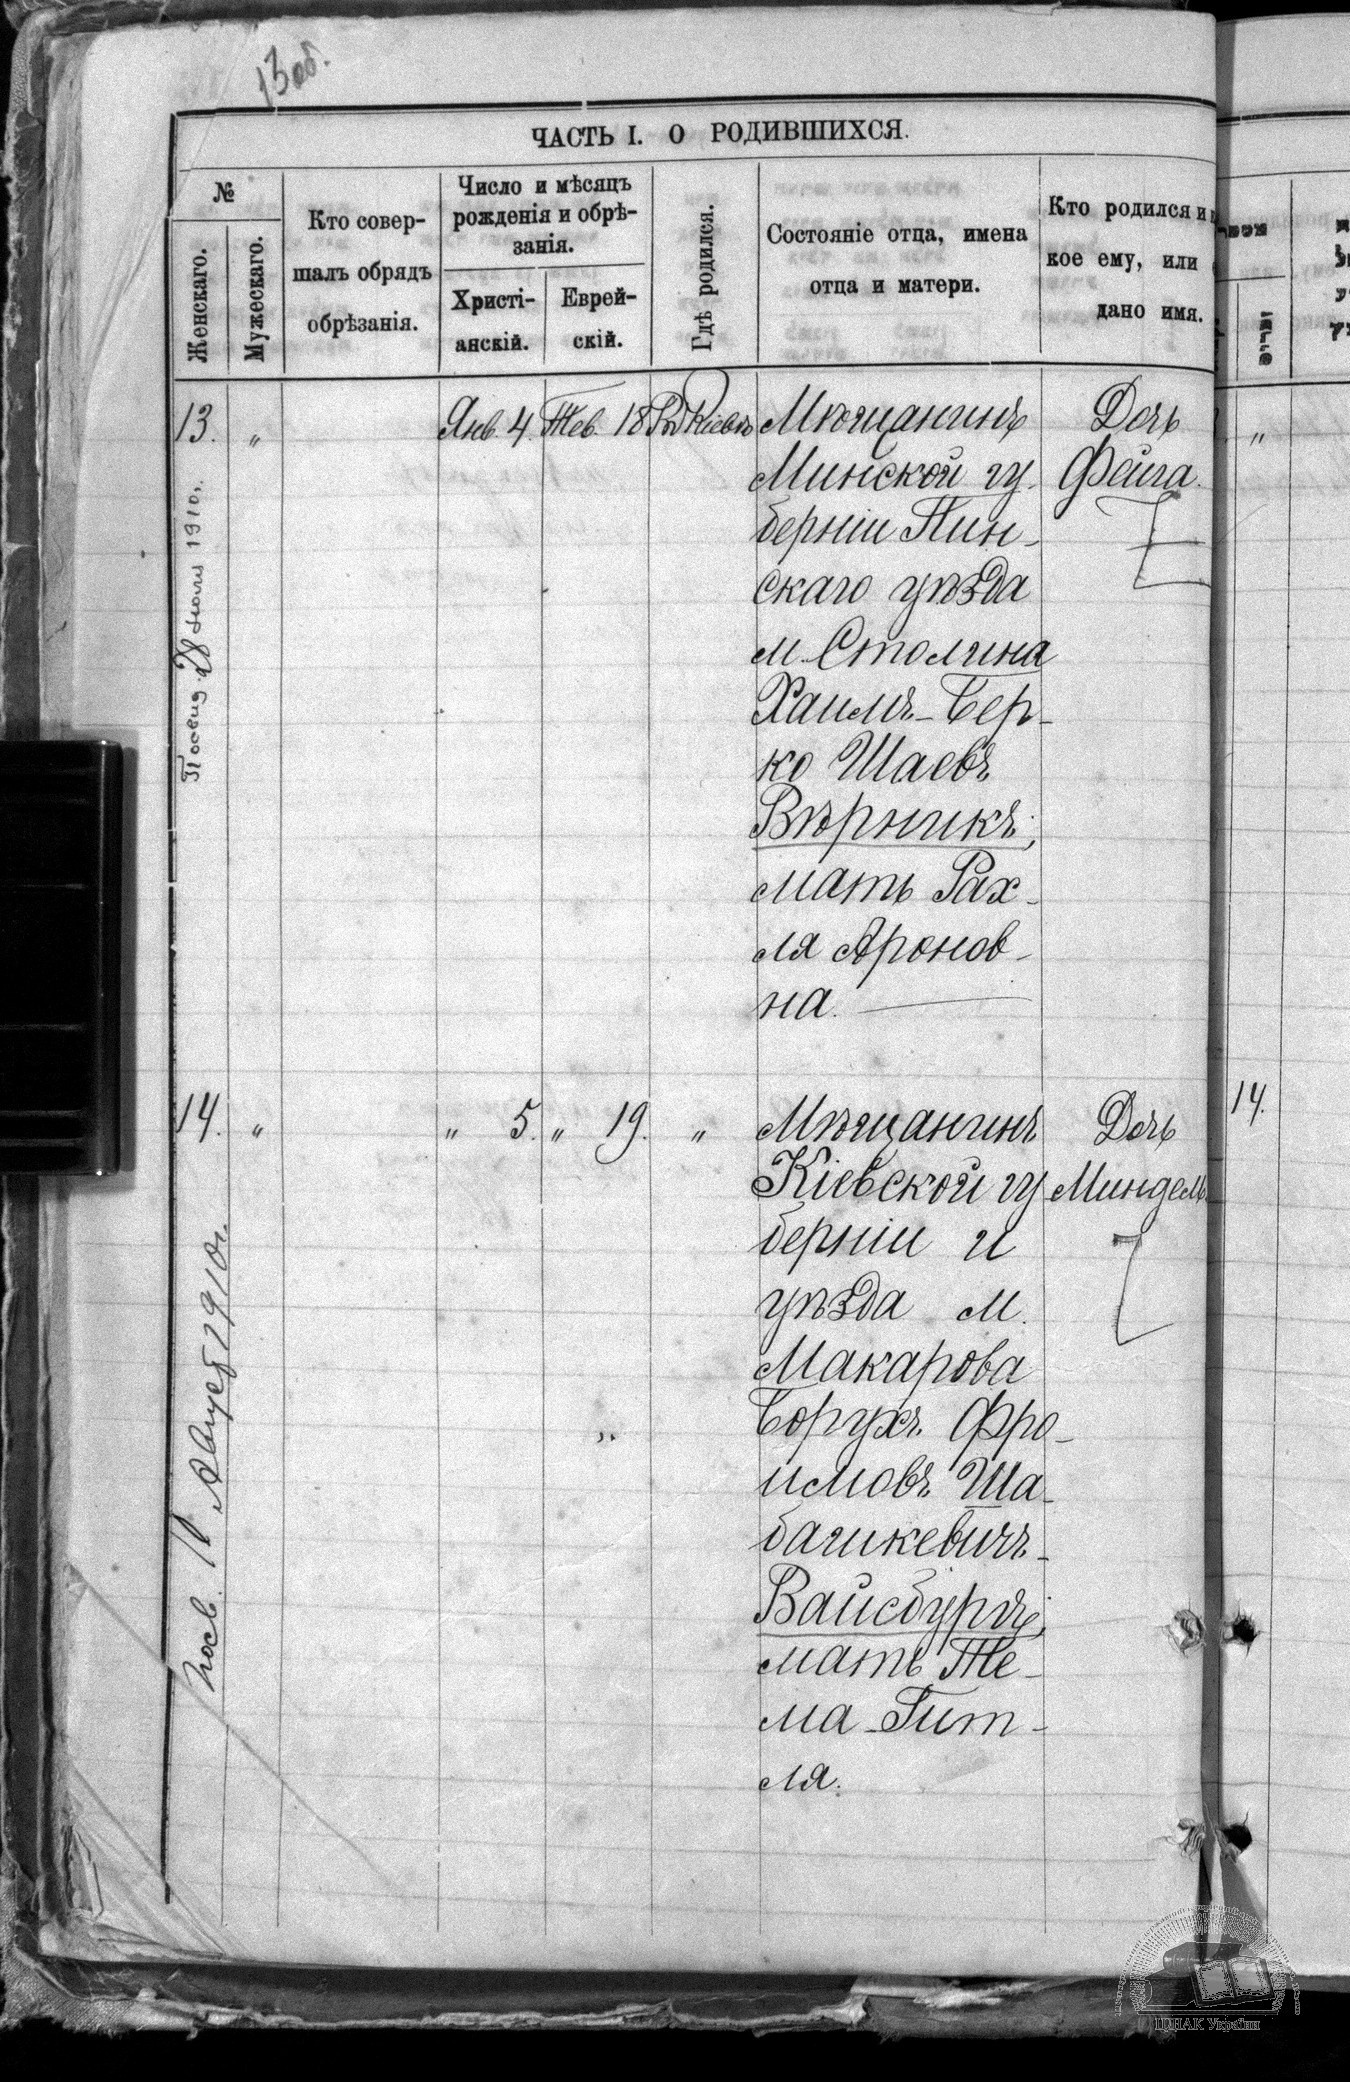 13 об.
ЧАСТЬ I. О РОДИВШИХСЯ.
№
Женскаго.
Мужескаго.
Кто совер-
шалъ обрядъ
обрѣзанія.
Число и мѣсяцъ
рожденія и обрѣ-
занія.
Христі-
анскій.
Еврей-
скій.
Гдѣ родился.
Состояніе отца, имена
отца и матери.
Кто родился и
кое ему, или
дано имя.
13. „ Янв. 4. Тев. 18 Въ Кіевѣ
Мѣщанинъ
Минской гу-
берніи Пин-
скаго уѣзда
м. Столина
Хаимъ-Бер-
ко Шаевъ
Вѣрникъ;
мать Рах-
ля Аронов-
на.
Дочь
Фейга.
28 июля 1910 г.
„
14. „ „ 5. „ 19. „
Мѣщанинъ
Кіевской гу
берніи и
уѣзда м.
Макарова
Борухъ Фро-
имовъ Ша-
багикевичъ-
Вайсбургъ;
мать Те-
ма-Гит-
ля.
Дочь
Миндель
Посв. 11 Август 1910 г.
14.
ЦДІАК України